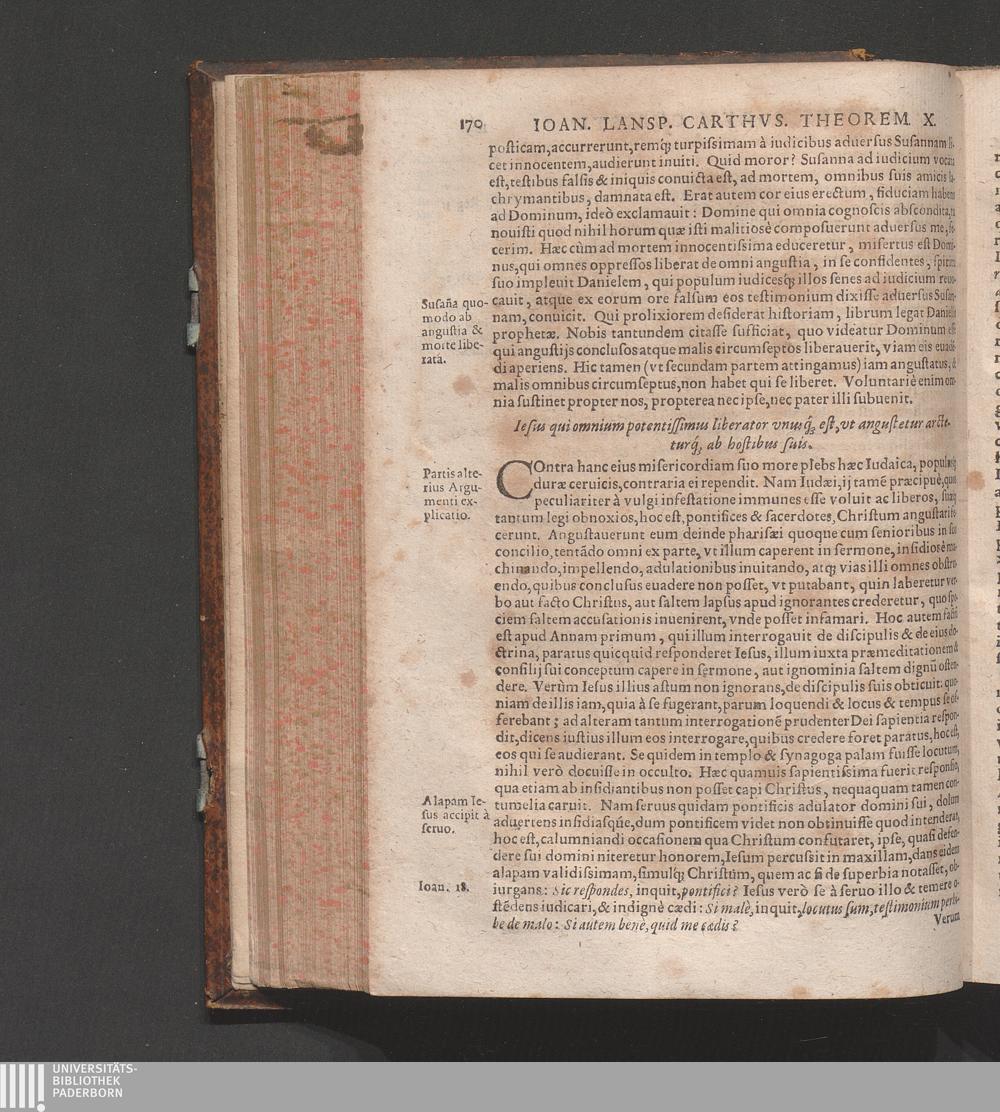 170 IOAN. LANSP. CARTHVS. THEOREM. X.
posticam, accurrerunt, remq́; turpissimam à iudicibus aduersus Susannam li-
cet innocentem, audierunt inuiti. Quid moror? Susanna ad iudicium vocata
est, testibus falsis & iniquis conuicta est, ad mortem, omnibus suis amicis la-
chrymantibus, damnata est. Erat autem cor eius erectum, fiduciam habens
ad Dominum, ideò exclamauit: Domine qui omnia cognoscis abscondita, tu
nouisti quod nihil horum quæ isti malitiosè composuerunt aduersus me, fe-
cerim. Hæc cùm ad mortem innocentissima educeretur, misertus est Domi-
nus, qui omnes oppressos liberat de omni angustia, in se confidentes, spiritu
suo impleuit Danielem, qui populum iudicesq́; illos senes ad iudicium reuo-
Susãna quo-
modo ab
angustia &
morte libe-
rata.
cauit, atque ex eorum ore falsum eos testimonium dixisse aduersus Susan-
nam, conuicit. Qui prolixiorem desiderat historiam, librum legat Danielis
prophetæ. Nobis tantundem citasse sufficiat, quo videatur Dominum esse
qui angustijs conclusos atque malis circumseptos liberauerit, viam eis euadē-
di aperiens. Hic tamen (vt secundam partem attingamus) iam angustatus, &
malis omnibus circumseptus, non habet qui se liberet. Voluntariè enim om-
nia sustinet propter nos, propterea nec ipse, nec pater illi subuenit.
Iesus qui omnium potentissimus liberator vnusq́; est, vt angustetur arcte-
turq́; ab hostibus suis.
Partis alte-
rius Argu-
menti ex-
plicatio.
COntra hanc eius misericordiam suo more plebs hæc Iudaica, populusq́;
duræ ceruicis, contraria ei rependit. Nam Iudæi, ij tamē præcipuè, quos
peculiariter à vulgi infestatione immunes esse voluit ac liberos, suæq́;
tantum legi obnoxios, hoc est, pontifices & sacerdotes, Christum angustari fe-
cerunt. Angustauerunt eum deinde pharisæi quoque cum senioribus in suo
concilio, tentādo omni ex parte, vt illum caperent in sermone, insidiosè ma-
chinando, impellendo, adulationibus inuitando, atq́; vias illi omnes obstru-
endo, quibus conclusus euadere non posset, vt putabant, quin laberetur ver-
bo aut facto Christus, aut saltem lapsus apud ignorantes crederetur, quo spe-
ciem saltem accusationis inuenirent, vnde posset infamari. Hoc autem factū
est apud Annam primum, qui illum interrogauit de discipulis & de eius do-
ctrina, paratus quicquid responderet Iesus, illum iuxta præmeditationem &
consilij sui conceptum capere in sermone, aut ignominia saltem dignū osten-
dere. Verùm Iesus illius astum non ignorans, de discipulis suis obticuit: quo-
niam de illis iam, quia à se fugerant, parum loquendi & locus & tempus se of-
ferebant; ad alteram tantum interrogationē prudenter Dei sapientia respon-
dit, dicens iustius illum eos interrogare, quibus credere foret paratus, hoc est,
eos qui se audierant. Se quidem in templo & synagoga palam fuisse locutum,
nihil verò docuisse in occulto. Hæc quamuis sapientissima fuerit responsio,
qua etiam ab insidiantibus non posset capi Christus, nequaquam tamen con-
Alapam Ie-
sus accipit à
seruo.
tumelia caruit. Nam seruus quidam pontificis adulator domini sui, dolum
aduertens insidiasq́ue, dum pontificem videt non obtinuisse quod intenderat,
hoc est, calumniandi occasionem qua Christum confutaret, ipse, quasi defen-
dere sui domini niteretur honorem, Iesum percussit in maxillam, dans eidem
alapam validissimam, simulq́; Christum, quem ac si de superbia notasset, ob-
Ioan. 18.
iurgans: Sic respondes, inquit, pontifici? Iesus verò se à seruo illo & temere o-
stēdens iudicari, & indignè cædi: Si malè, inquit, locutus sum, testimonium perhi-
be de malo: Si autem benè, quid me cædis?
Verum
UNIVERSITÄTS-
BIBLIOTHEK
PADERBORN